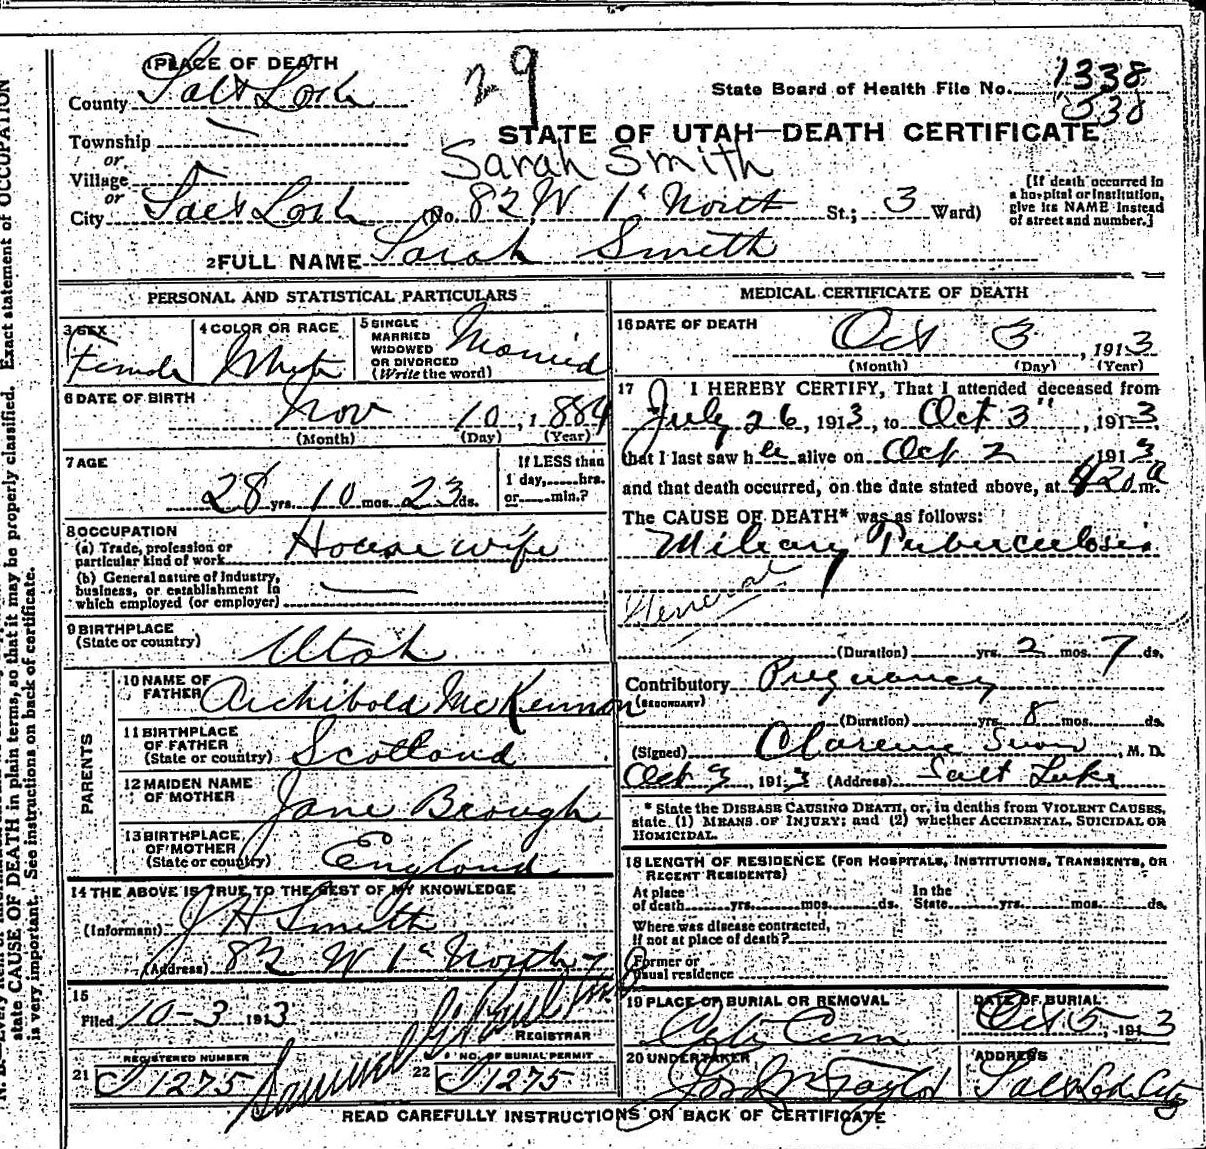 1 PLACE OF DEATH
County Salt Lake
Township
or
Village
or
City Salt Lake (No. 82 W 1st North St.; 3 Ward)
29
State Board of Health File No. 1338
STATE OF UTAH—DEATH CERTIFICATE
Sarah Smith
[If death occurred in
a hospital or institution,
give its NAME instead
of street and number.]
2 FULL NAME Sarah Smith
PERSONAL AND STATISTICAL PARTICULARS
3 SEX Female
4 COLOR OR RACE White
5 SINGLE
MARRIED
WIDOWED
OR DIVORCED
(Write the word) Married
6 DATE OF BIRTH
Nov 10, 1884
(Month) (Day) (Year)
7 AGE
28 yrs. 10 mos. 23 ds.
If LESS than
1 day, hrs.
or min.?
8 OCCUPATION
(a) Trade, profession or
particular kind of work House wife
(b) General nature of industry,
business, or establishment in
which employed (or employer)
9 BIRTHPLACE
(State or country) Utah
PARENTS
10 NAME OF
FATHER Archibold McKennon
11 BIRTHPLACE
OF FATHER
(State or country) Scotland
12 MAIDEN NAME
OF MOTHER Jane Brough
13 BIRTHPLACE
OF MOTHER
(State or country) England
14 THE ABOVE IS TRUE TO THE BEST OF MY KNOWLEDGE
(Informant) J H Smith
(Address) 82 W 1st North
15
Filed 10-3 1913
REGISTRAR
REGISTERED NUMBER
21 1275
NO. OF BURIAL PERMIT
22 1275
MEDICAL CERTIFICATE OF DEATH
16 DATE OF DEATH
Oct 3, 1913
(Month) (Day) (Year)
17 I HEREBY CERTIFY, That I attended deceased from
July 26, 1913, to Oct 3", 1913,
that I last saw her alive on Oct 2 1913
and that death occurred, on the date stated above, at 420 a m.
The CAUSE OF DEATH* was as follows:
Miliary Tuberculosis
General
(Duration) yrs. 2 mos. 7 ds.
Contributory Pregnancy
(SECONDARY)
(Duration) yrs. 8 mos. ds.
(Signed) Clarence Snow, M. D.
Oct 3, 1913 (Address) Salt Lake
* State the DISEASE CAUSING DEATH, or, in deaths from VIOLENT CAUSES,
state (1) MEANS OF INJURY; and (2) whether ACCIDENTAL, SUICIDAL OR
HOMICIDAL.
18 LENGTH OF RESIDENCE (FOR HOSPITALS, INSTITUTIONS, TRANSIENTS, OR
RECENT RESIDENTS)
At place
of death yrs. mos. ds.
In the
State yrs. mos. ds.
Where was disease contracted,
if not at place of death?
Former or
usual residence
19 PLACE OF BURIAL OR REMOVAL
City Cem
DATE OF BURIAL
Oct 5, 1913
20 UNDERTAKER
Jos Wm Taylor
ADDRESS
Salt Lake City
READ CAREFULLY INSTRUCTIONS ON BACK OF CERTIFICATE
state CAUSE OF DEATH in plain terms, so that it may be properly classified. Exact statement of OCCUPATION
is very important. See instructions on back of certificate.